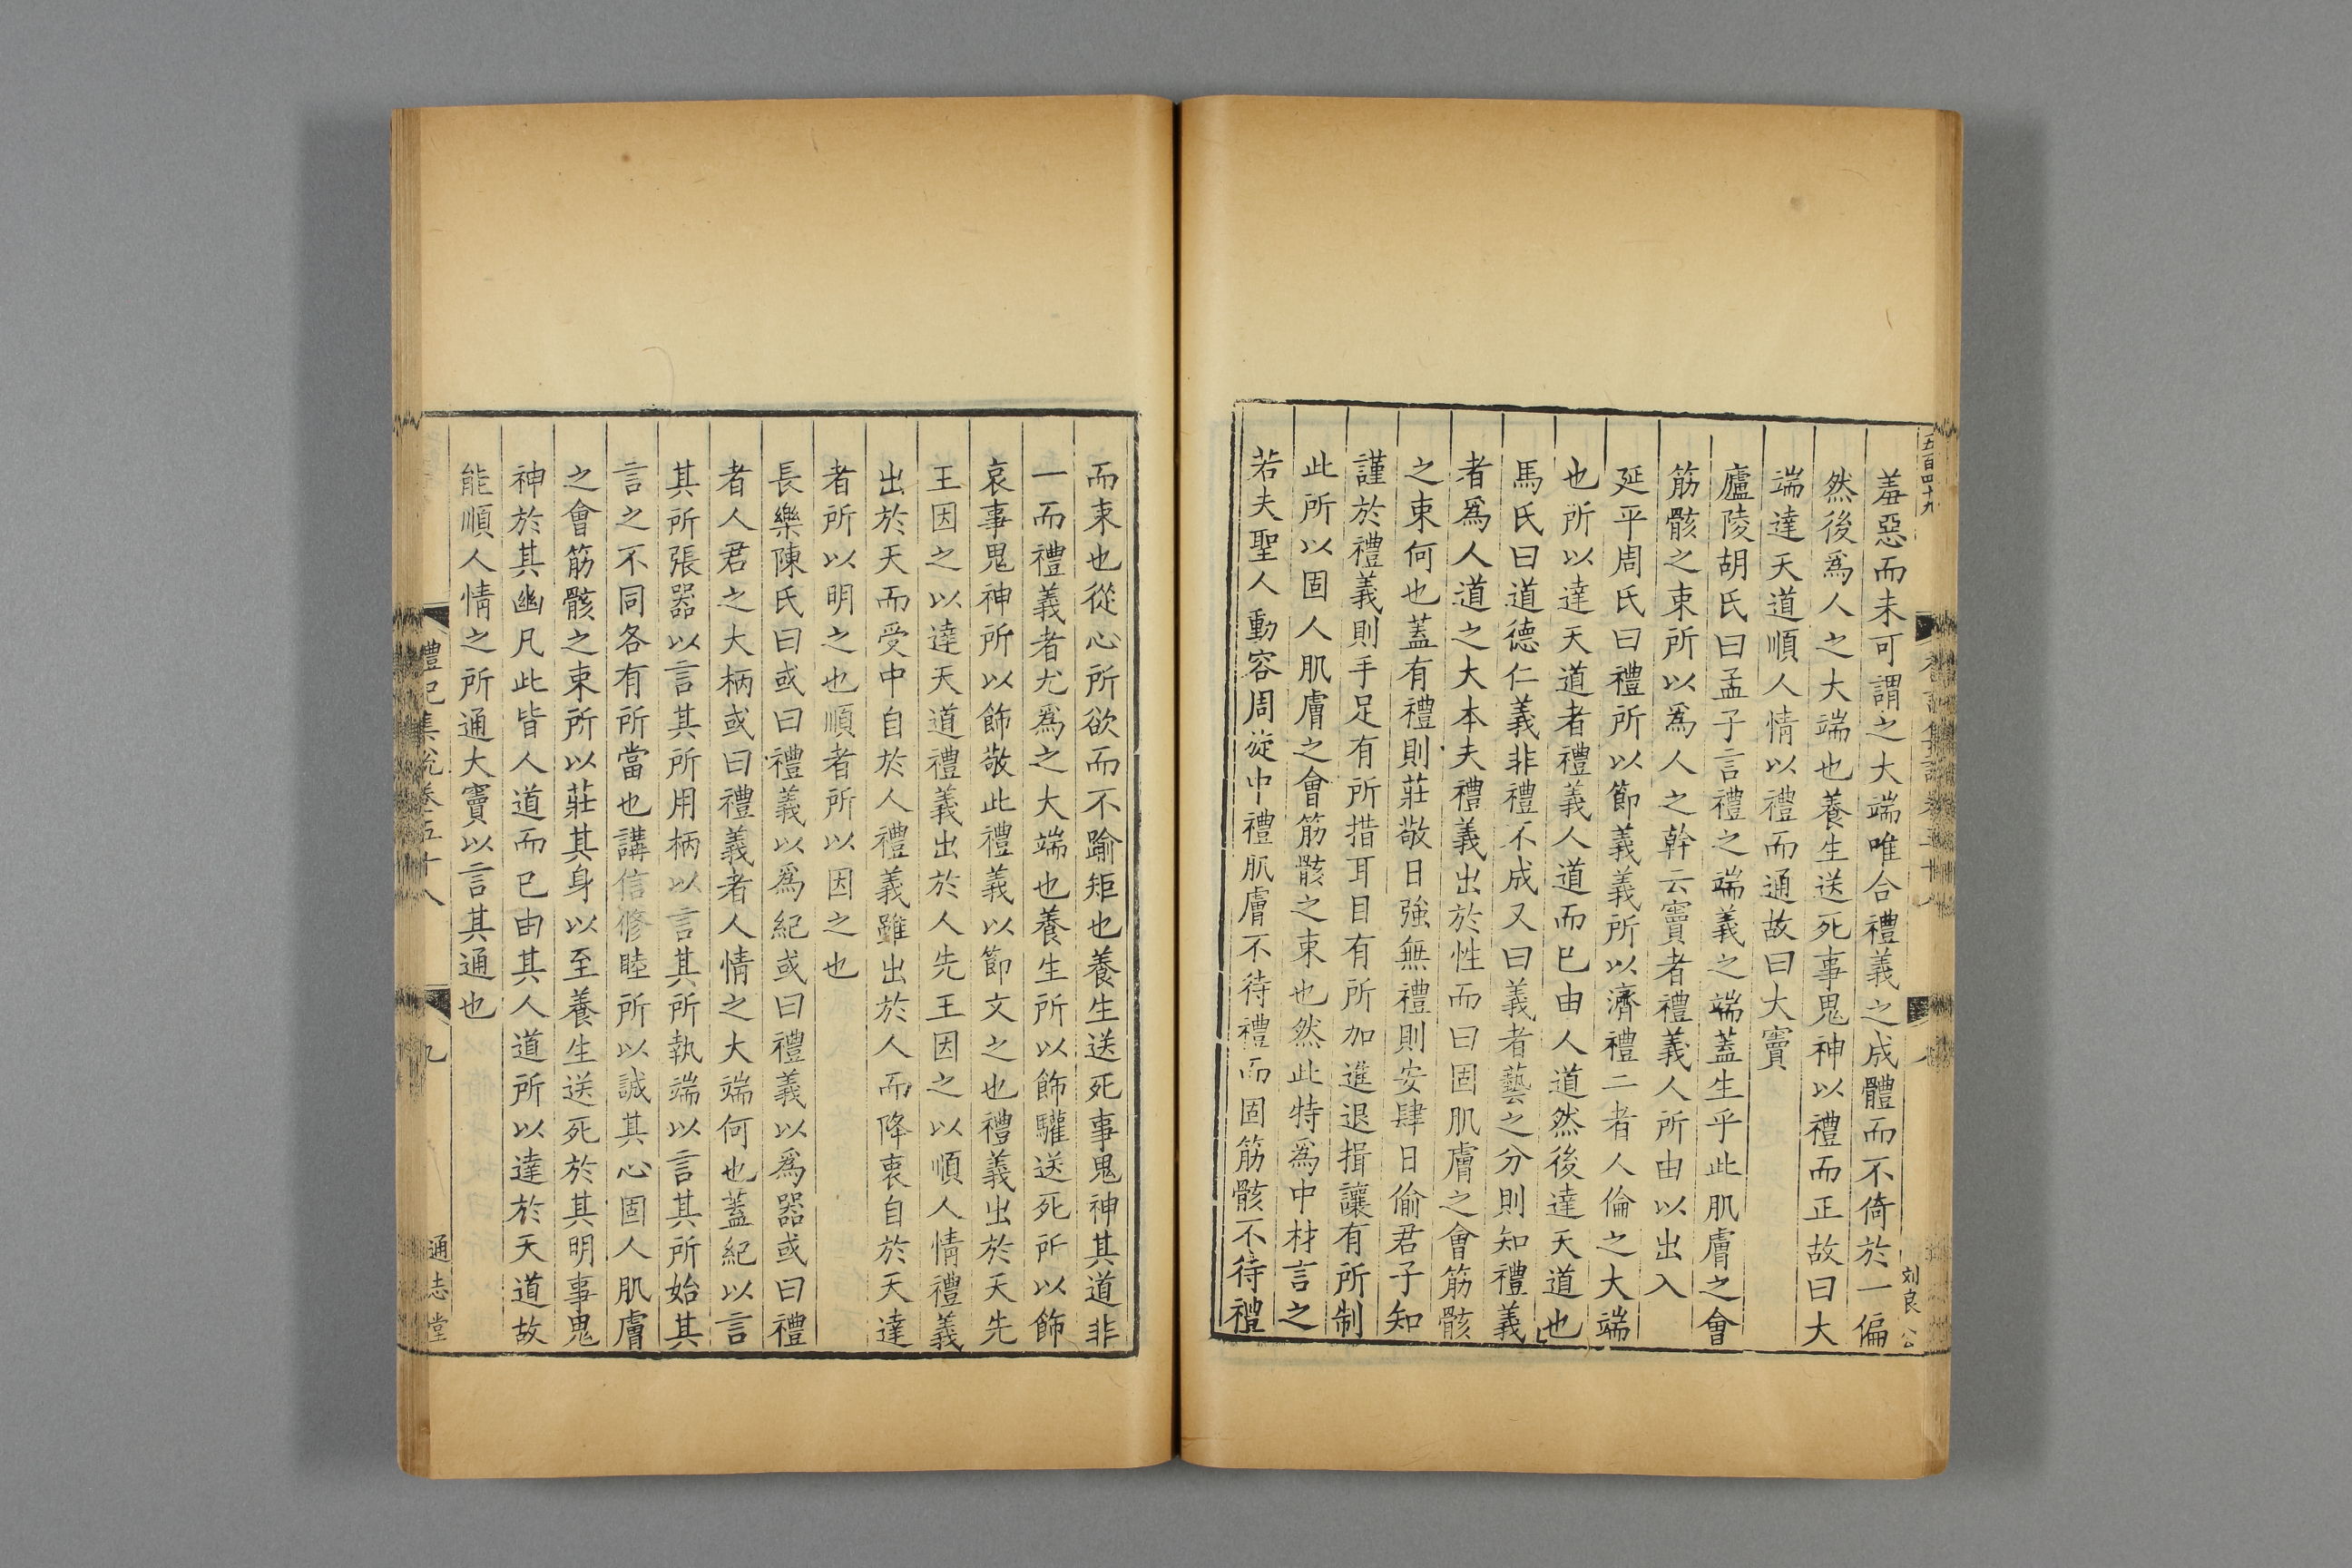 五百四十九
羞惡而未可謂之大端唯合禮義之成體而不倚於一偏
然後爲人之大端也養生送死事鬼神以禮而正故曰大
端達天道順人情以禮而通故曰大竇
廬陵胡氏曰孟子言禮之端義之端蓋生乎此肌膚之會
筋骸之束所以爲人之幹云竇者禮義人所由以出入
延平周氏曰禮所以節義義所以濟禮二者人倫之大端
也所以達天道者禮義人道而已由人道然後達天道也
馬氏曰道德仁義非禮不成又曰義者藝之分則知禮義
者爲人道之大本夫禮義出於性而曰固肌膚之會筋骸
之束何也蓋有禮則莊敬日強無禮則安肆日偷君子知
謹於禮義則手足有所措耳目有所加進退揖讓有所制
此所以固人肌膚之會筋骸之束也然此特爲中材言之
若夫聖人動容周旋中禮肌膚不待禮而固筋骸不待禮
刘良
公
而束也從心所欲而不踰矩也養生送死事鬼神其道非
一而禮義者尤爲之大端也養生所以飾驩送死所以飾
哀事鬼神所以飾敬此禮義以節文之也禮義出於天先
王因之以達天道禮義出於人先王因之以順人情禮義
出於天而受中自於人禮義雖出於人而降衷自於天達
者所以明之也順者所以因之也
長樂陳氏曰或曰禮義以爲紀或曰禮義以爲器或曰禮
者人君之大柄或曰禮義者人情之大端何也蓋紀以言
其所張器以言其所用柄以言其所執端以言其所始其
言之不同各有所當也講信修睦所以誠其心固人肌膚
之會筋骸之束所以莊其身以至養生送死於其明事鬼
神於其幽凡此皆人道而已由其人道所以達於天道故
能順人情之所通大竇以言其通也
禮記集說卷五十八
九
通志堂